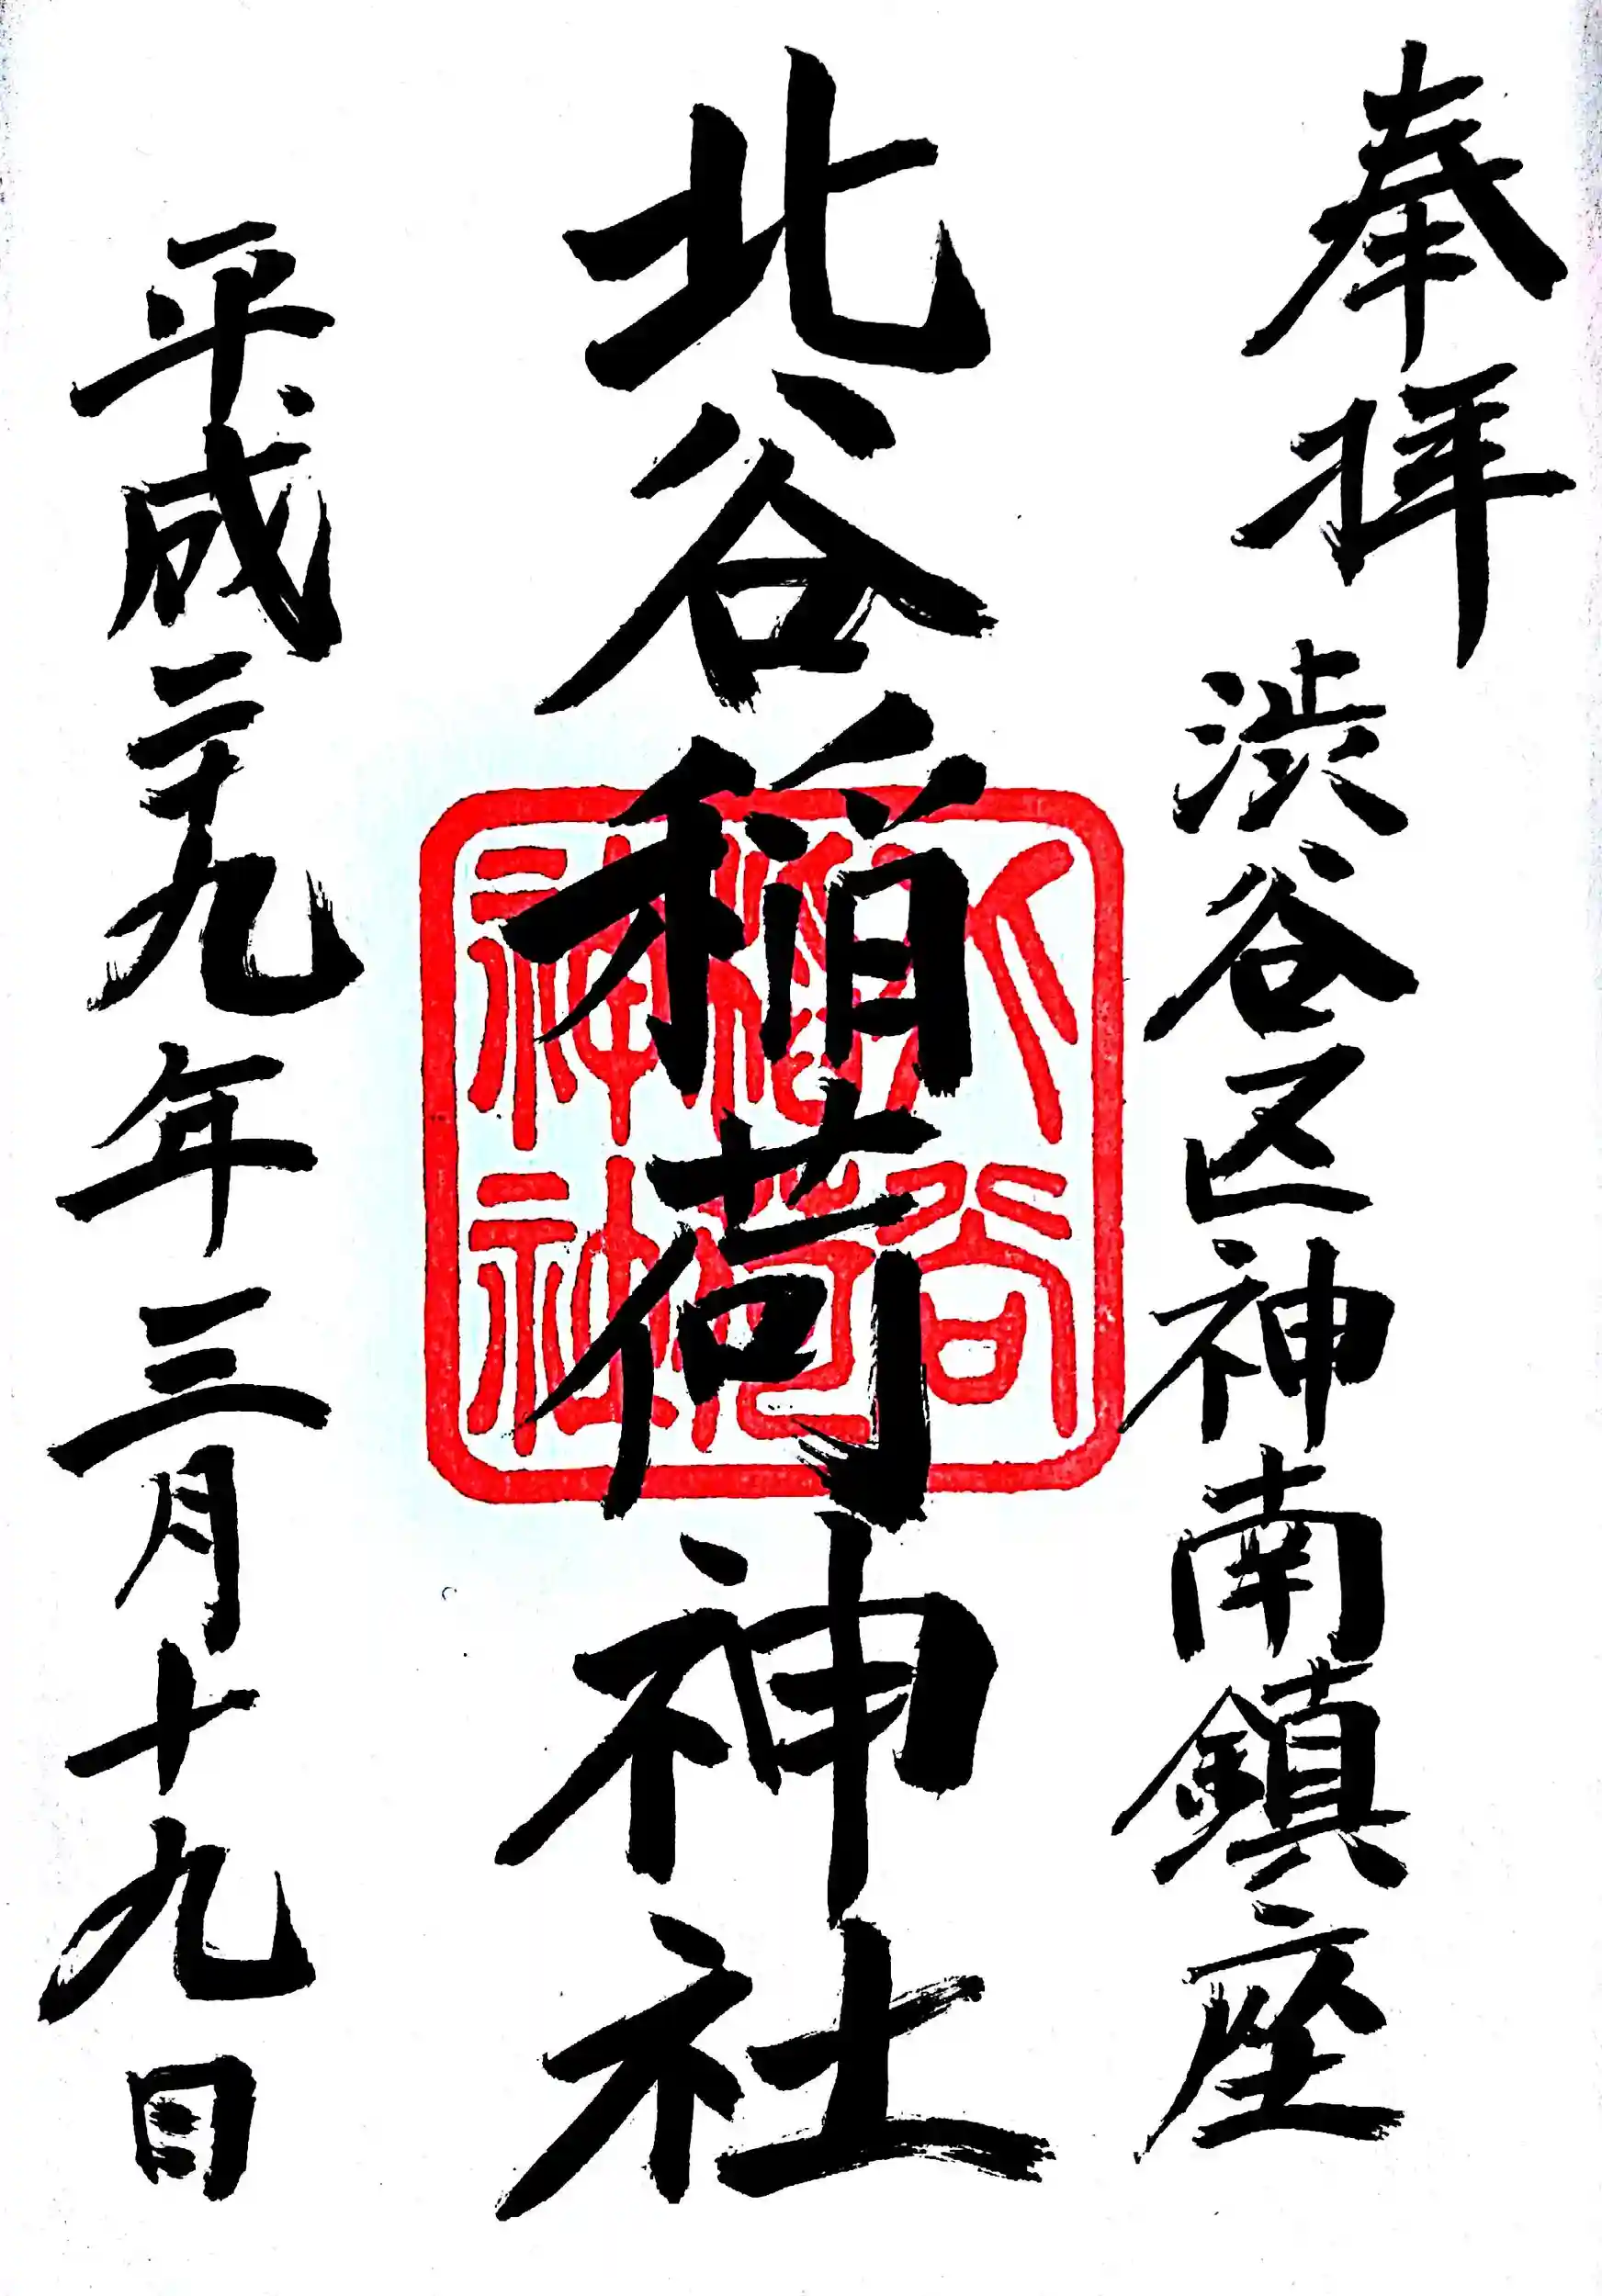 奉拝 渋谷区神南鎮座
北谷稲荷神社
平成二十九年三月十九日
北谷
稲荷
神社